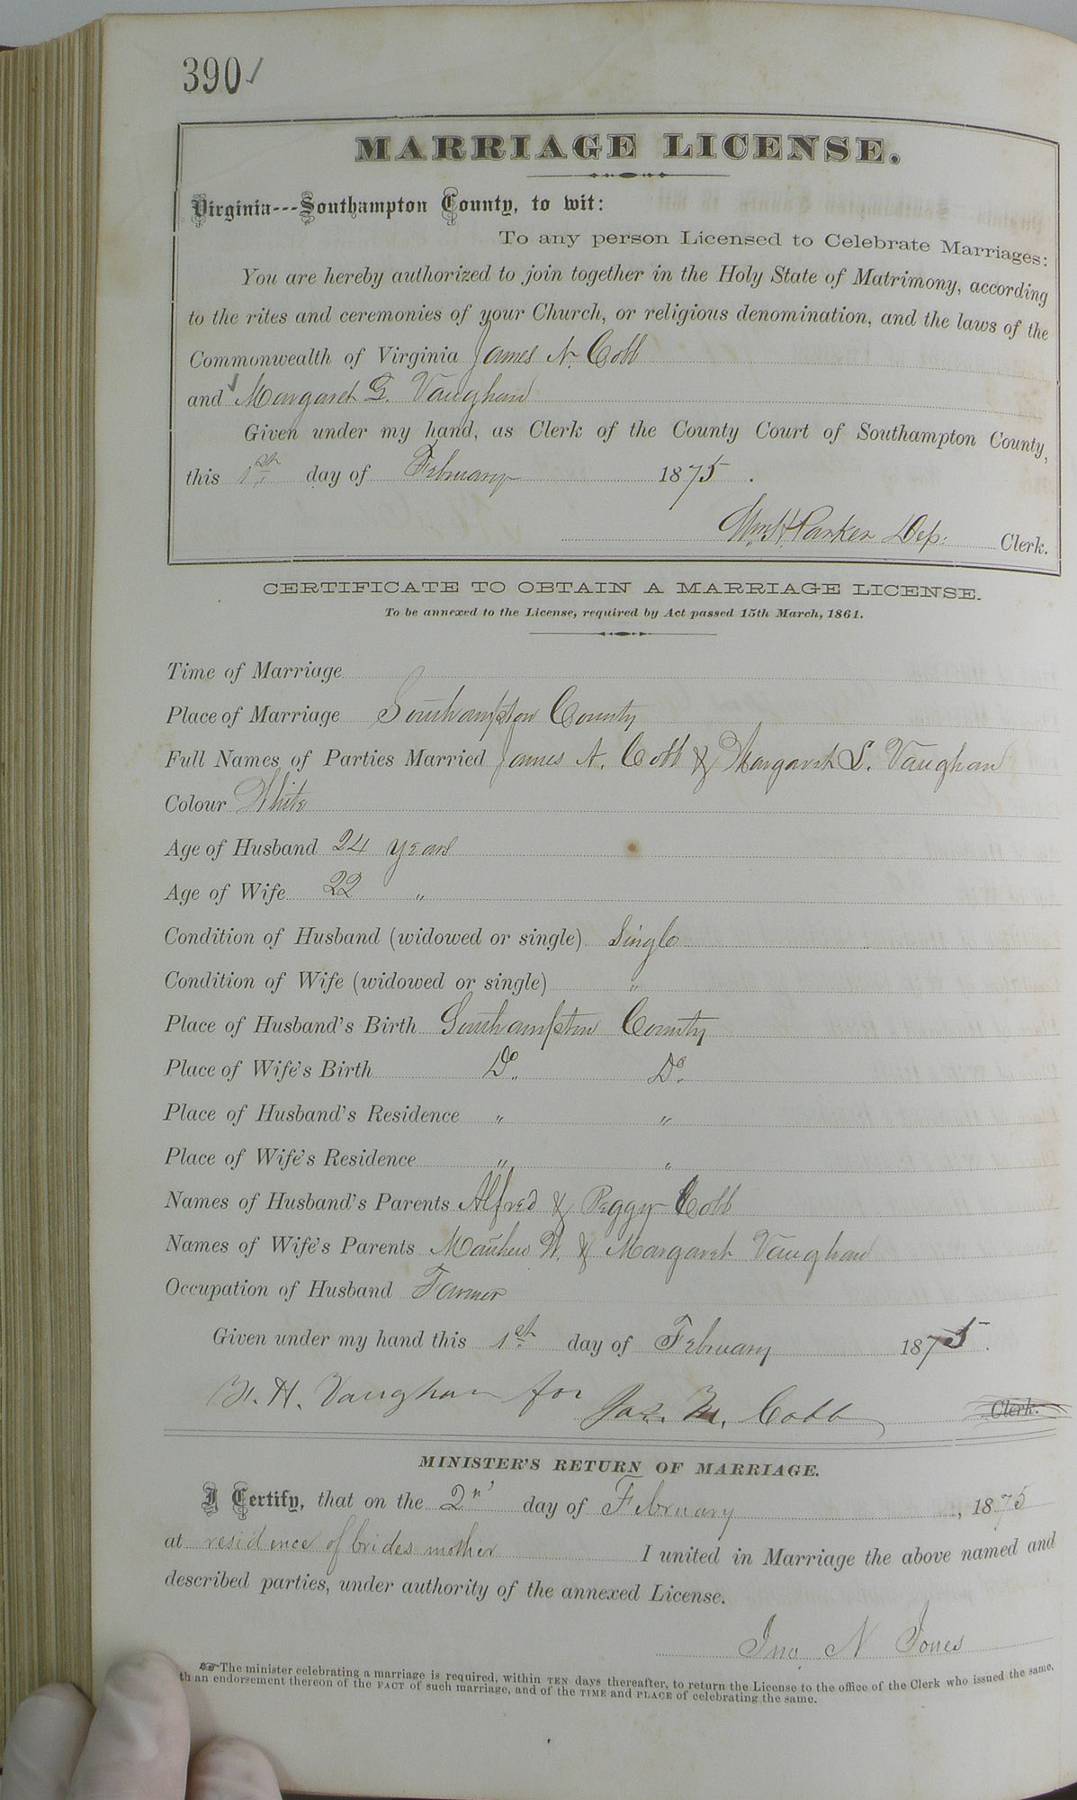 390✓
MARRIAGE LICENSE.
Virginia---Southampton County, to wit:
To any person Licensed to Celebrate Marriages:
You are hereby authorized to join together in the Holy State of Matrimony, according
to the rites and ceremonies of your Church, or religious denomination, and the laws of the
Commonwealth of Virginia James N. Cobb
and Margaret G. Vaughan
Given under my hand, as Clerk of the County Court of Southampton County,
this 1st day of February 1875.
Wm H Parker Dep. Clerk.
CERTIFICATE TO OBTAIN A MARRIAGE LICENSE.
To be annexed to the License, required by Act passed 15th March, 1861.
Time of Marriage
Place of Marriage Southampton County
Full Names of Parties Married James N. Cobb & Margaret S. Vaughan
Colour White
Age of Husband 24 years
Age of Wife 22 "
Condition of Husband (widowed or single) Single
Condition of Wife (widowed or single) "
Place of Husband's Birth Southampton County
Place of Wife's Birth Do. Do.
Place of Husband's Residence " "
Place of Wife's Residence " "
Names of Husband's Parents Alfred & Peggy Cobb
Names of Wife's Parents Mathew & Margaret Vaughan
Occupation of Husband Farmer
Given under my hand this 1st day of February 1875.
H. Vaughan for Jas. Cobb Clerk.
MINISTER'S RETURN OF MARRIAGE.
I Certify, that on the 2nd day of February, 1875
at residence of brides mother I united in Marriage the above named and
described parties, under authority of the annexed License.
Jno. N Jones
☞ The minister celebrating a marriage is required, within TEN days thereafter, to return the License to the office of the Clerk who issued the same,
th an endorsement thereon of the FACT of such marriage, and of the TIME and PLACE of celebrating the same.